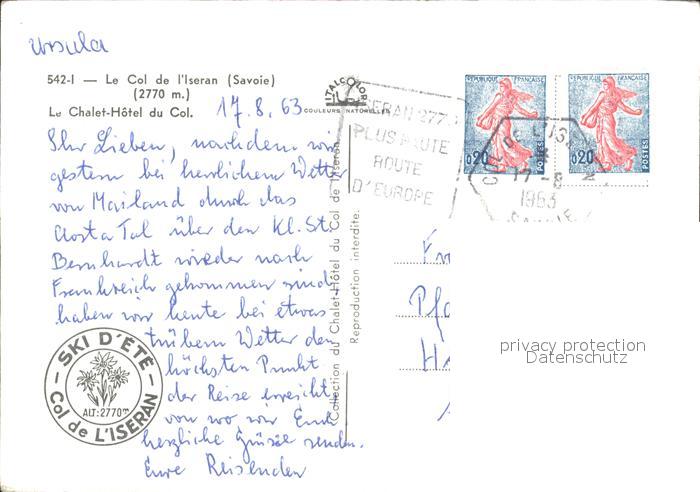 Ursula
542-I — Le Col de l'Iseran (Savoie)
(2770 m.)
Le Chalet-Hôtel du Col.
17.8.63
ITALCOLOR
COULEURS NATURELLES
Ihr Lieben, nachdem wir
gestern bei herrlichem Wetter
von Mailand durch das
Aosta Tal über den Kl. St.
Bernhardt wieder nach
Frankreich gekommen sind
haben wir heute bei etwas
trübem Wetter den
höchsten Punkt
der Reise erreicht
von wo wir Euch
herzliche Grüsse senden.
Eure Reisenden
SKI D'ÉTÉ
ALT: 2770m
Col de L'ISERAN
Collection du Chalet-Hôtel du Col de l'Iseran
Reproduction interdite.
ISERAN 2770
PLUS HAUTE
ROUTE
D'EUROPE
REPUBLIQUE FRANÇAISE
0,20
POSTES
REPUBLIQUE FRANÇAISE
0,20
POSTES
COL DE L'ISERAN
17-8
1963
SAVOIE
Pfa
privacy protection
Datenschutz